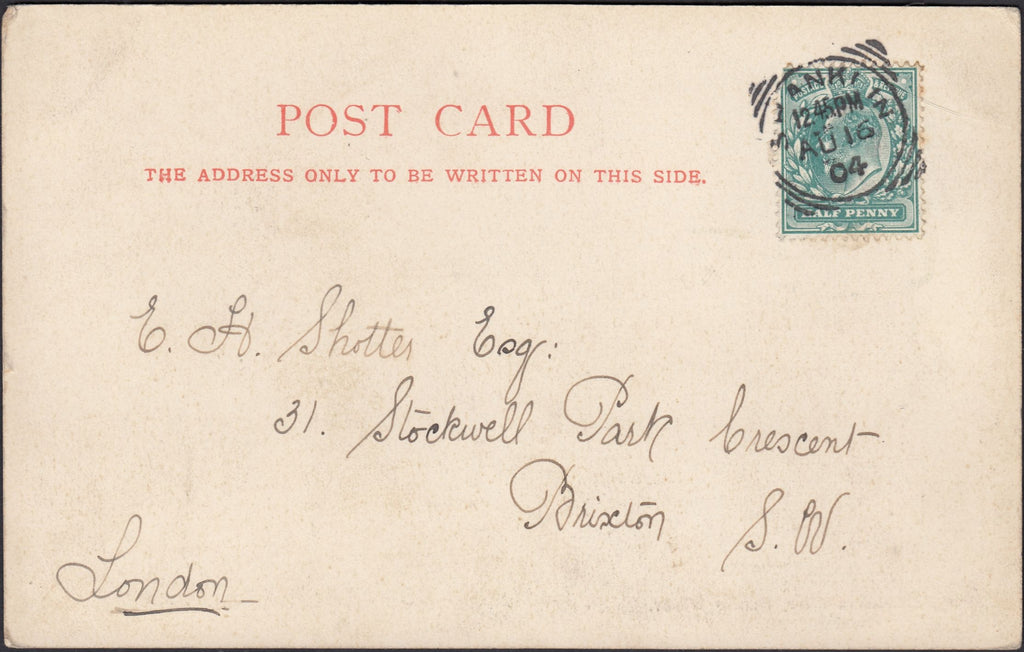 POST CARD
THE ADDRESS ONLY TO BE WRITTEN ON THIS SIDE.
SHANKLIN
12.45PM
AU 16
04
HALF PENNY
E. H. Shotter Esq:
31. Stockwell Park Crescent
Brixton S.W.
London